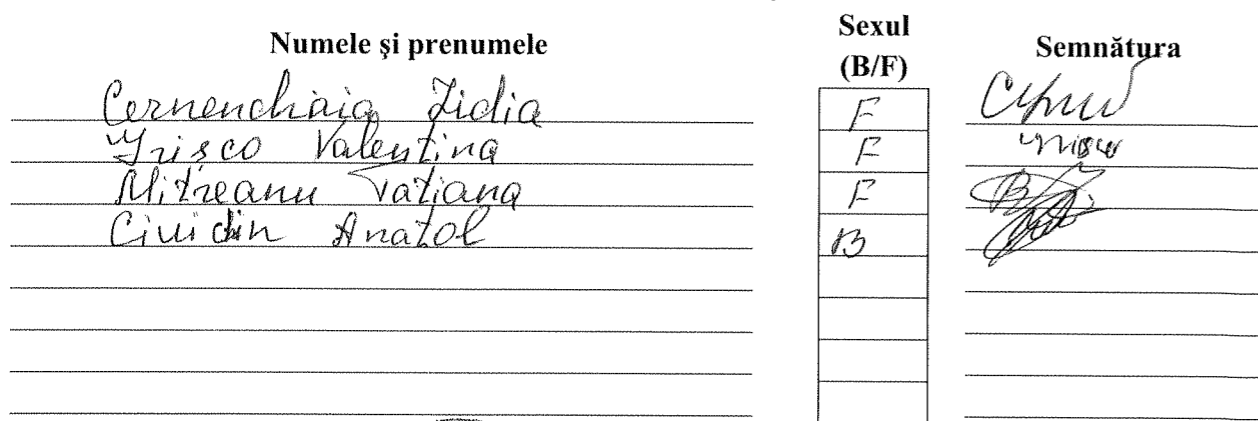 Numele şi prenumele Sexul (B/F) Semnătura
Cernenchaia Lidia F
Grisco Valentina F
Mitreanu Tatiana F
Anatol B